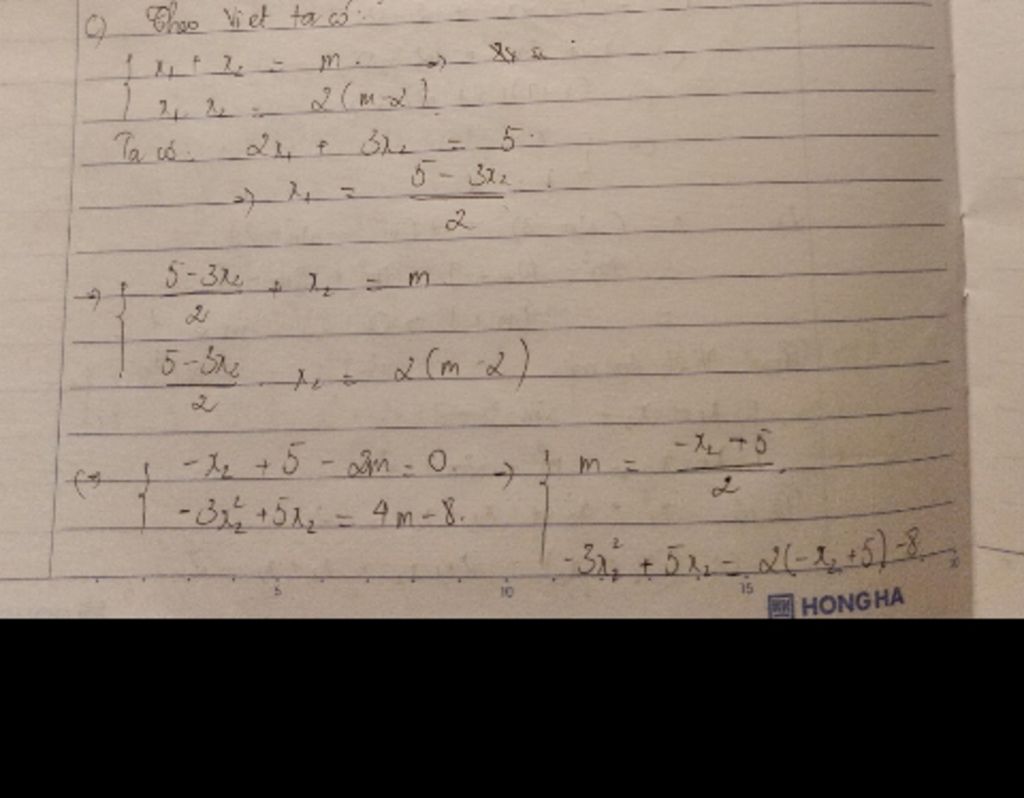 c) Theo Viet ta có:
{ x₁ + x₂ = m. =>
x₁ x₂ = 2(m-2)
Ta có: 2x₁ + 3x₂ = 5.
=> x₁ = (5 - 3x₂)/2
=> { (5-3x₂)/2 + x₂ = m
(5-3x₂)/2 . x₂ = 2(m-2)
(=> { -x₂ + 5 - 2m = 0. => { m = (-x₂+5)/2.
-3x₂² + 5x₂ = 4m-8.
-3x₂² + 5x₂ = 2(-x₂+5)-8
5 10 15
HONG HA